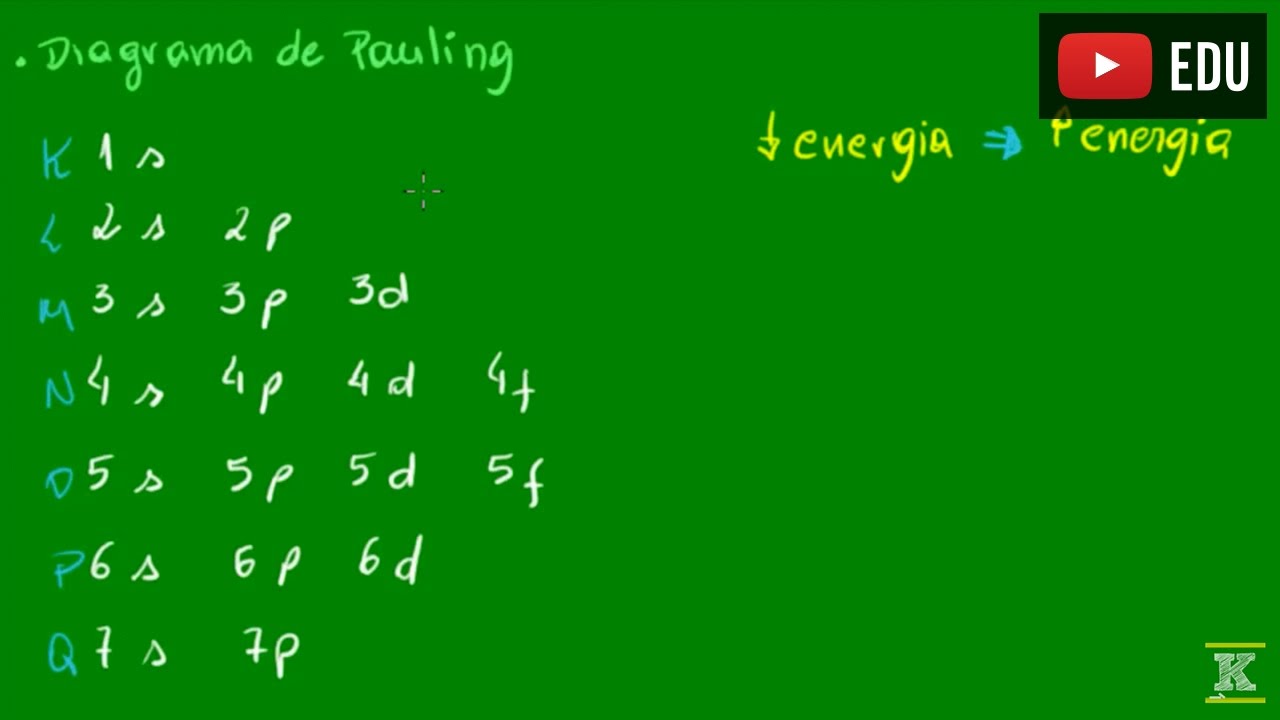 . Diagrama de Pauling
EDU
↓ energia ⇒ ↑ energia
K 1s
L 2s 2p
M 3s 3p 3d
N 4s 4p 4d 4f
O 5s 5p 5d 5f
P 6s 6p 6d
Q 7s 7p
K